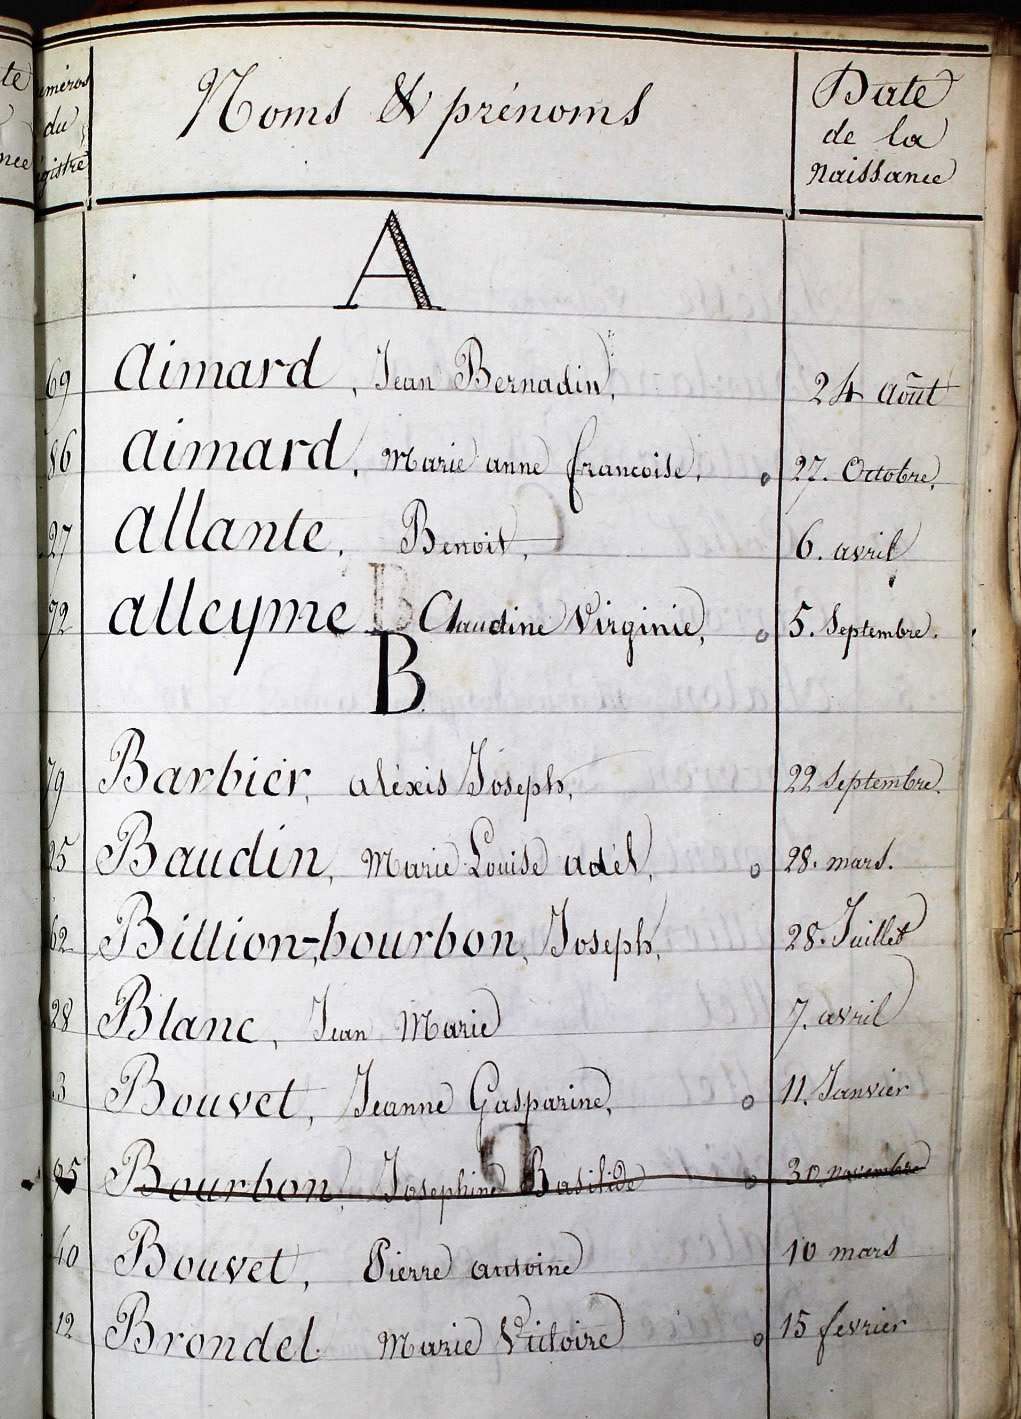 Numéros du registre
Noms & prénoms
Date de la Naissance
A
69 aimard, Jean Bernadin, 24 août
86 aimard, Marie anne francoise, o 27. Octobre,
27 allante, Benoit, 6. avril
72 alleyme Claudine Virginie, o 5. Septembre.
B
79 Barbier, aléxis Joseph, 22 Septembre.
25 Baudin, Marie Louise adél, o 28. mars.
62 Billion-bourbon, Joseph, 28. Juillet
28 Blanc, Jean Marie 7. avril
3 Bouvet, Jeanne Gasparine, o 11. Janvier
95 Bourbon, Josephine Basilide o 30 novembre
40 Bouvet, Pierre antoine 10 mars
12 Brondel. Marie Victoire o 15 fevrier